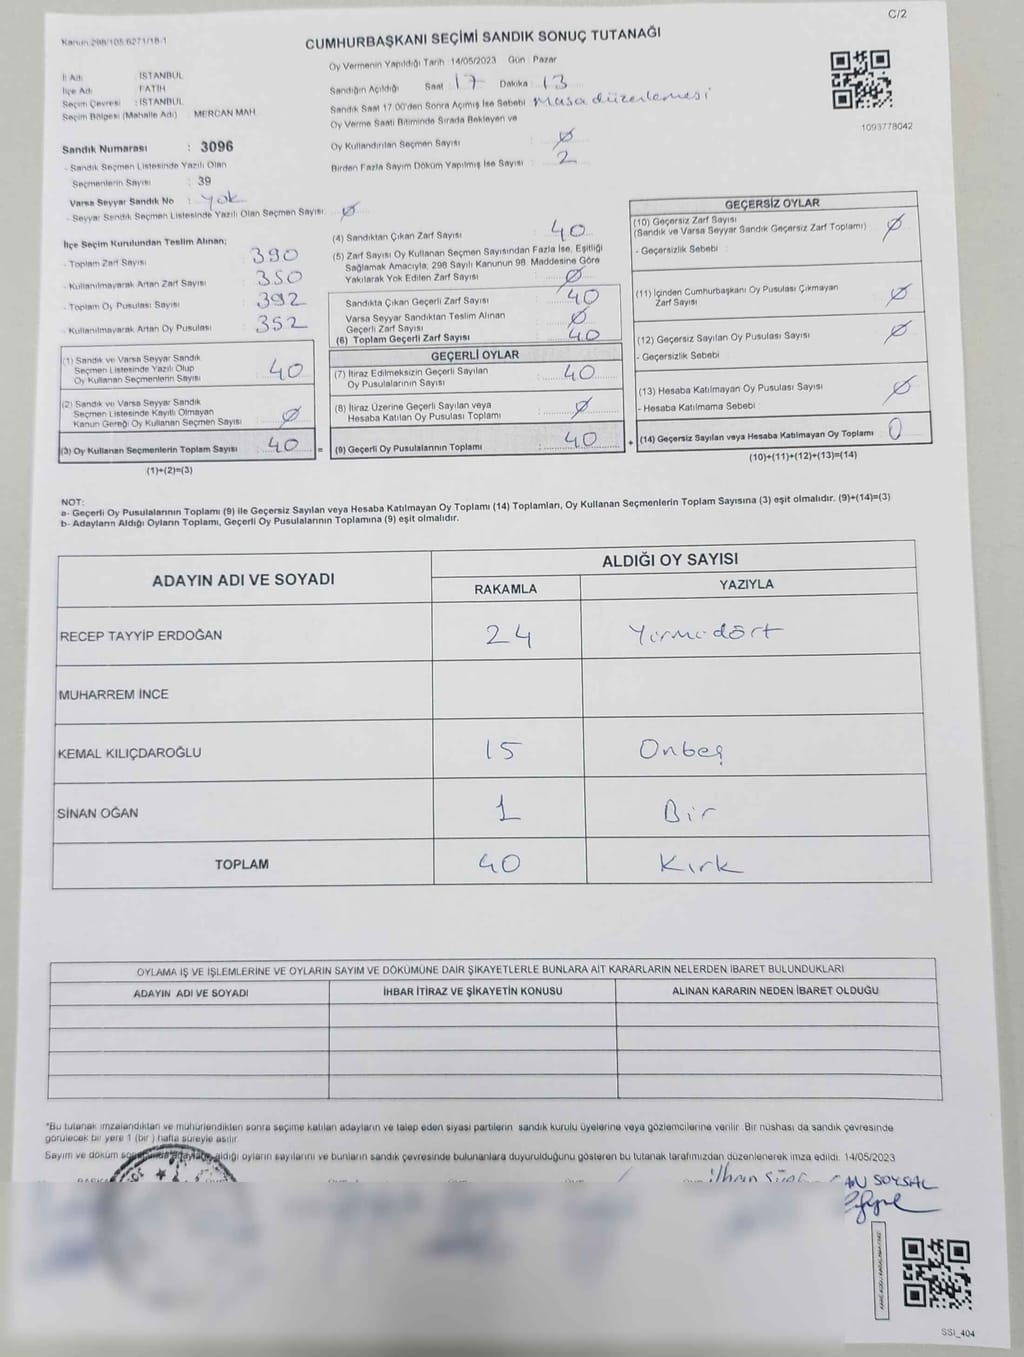 Kanun:298/105 6271/18-1
C/2
CUMHURBAŞKANI SEÇİMİ SANDIK SONUÇ TUTANAĞI
İl Adı : İSTANBUL
İlçe Adı : FATİH
Seçim Çevresi : İSTANBUL
Seçim Bölgesi (Mahalle Adı) : MERCAN MAH
Sandık Numarası : 3096
- Sandık Seçmen Listesinde Yazılı Olan
Seçmenlerin Sayısı : 39
Varsa Seyyar Sandık No : Yok
- Seyyar Sandık Seçmen Listesinde Yazılı Olan Seçmen Sayısı: Ø
Oy Vermenin Yapıldığı Tarih :14/05/2023 Gün : Pazar
Sandığın Açıldığı Saat : 17 Dakika : 13
Sandık Saat 17.00'den Sonra Açımış İse Sebebi : Masa düzenlemesi
Oy Verme Saati Bitiminde Sırada Bekleyen ve
Oy Kullandırılan Seçmen Sayısı : Ø
Birden Fazla Sayım Döküm Yapılmış İse Sayısı : 2
1093778042
İlçe Seçim Kurulundan Teslim Alınan;
- Toplam Zarf Sayısı : 390
- Kullanılmayarak Artan Zarf Sayısı : 350
- Toplam Oy Pusulası Sayısı : 392
- Kullanılmayarak Artan Oy Pusulası : 352
(1) Sandık ve Varsa Seyyar Sandık
Seçmen Listesinde Yazılı Olup
Oy Kullanan Seçmenlerin Sayısı : 40
(2) Sandık ve Varsa Seyyar Sandık
Seçmen Listesinde Kayıtlı Olmayan
Kanun Gereği Oy Kullanan Seçmen Sayısı : Ø
(3) Oy Kullanan Seçmenlerin Toplam Sayısı : 40
(1)+(2)=(3)
(4) Sandıktan Çıkan Zarf Sayısı : 40
(5) Zarf Sayısı Oy Kullanan Seçmen Sayısından Fazla İse, Eşitliği
Sağlamak Amacıyla; 298 Sayılı Kanunun 98. Maddesine Göre
Yakılarak Yok Edilen Zarf Sayısı : Ø
Sandıkta Çıkan Geçerli Zarf Sayısı : 40
Varsa Seyyar Sandıktan Teslim Alınan
Geçerli Zarf Sayısı : Ø
(6) Toplam Geçerli Zarf Sayısı : 40
GEÇERLİ OYLAR
(7) İtiraz Edilmeksizin Geçerli Sayılan
Oy Pusulalarının Sayısı : 40
(8) İtiraz Üzerine Geçerli Sayılan veya
Hesaba Katılan Oy Pusulası Toplamı : Ø
= (9) Geçerli Oy Pusulalarının Toplamı : 40
GEÇERSİZ OYLAR
(10) Geçersiz Zarf Sayısı
(Sandık ve Varsa Seyyar Sandık Geçersiz Zarf Toplamı) : Ø
- Geçersizlik Sebebi :
(11) İçinden Cumhurbaşkanı Oy Pusulası Çıkmayan
Zarf Sayısı : Ø
(12) Geçersiz Sayılan Oy Pusulası Sayısı : Ø
- Geçersizlik Sebebi :
(13) Hesaba Katılmayan Oy Pusulası Sayısı : Ø
- Hesaba Katılmama Sebebi :
+ (14) Geçersiz Sayılan veya Hesaba Katılmayan Oy Toplamı : 0
(10)+(11)+(12)+(13)=(14)
NOT:
a- Geçerli Oy Pusulalarının Toplamı (9) ile Geçersiz Sayılan veya Hesaba Katılmayan Oy Toplamı (14) Toplamları, Oy Kullanan Seçmenlerin Toplam Sayısına (3) eşit olmalıdır. (9)+(14)=(3)
b- Adayların Aldığı Oyların Toplamı, Geçerli Oy Pusulalarının Toplamına (9) eşit olmalıdır.
ADAYIN ADI VE SOYADI
ALDIĞI OY SAYISI
RAKAMLA YAZIYLA
RECEP TAYYİP ERDOĞAN 24 Yirmidört
MUHARREM İNCE
KEMAL KILIÇDAROĞLU 15 Onbeş
SİNAN OĞAN 1 Bir
TOPLAM 40 Kırk
OYLAMA İŞ VE İŞLEMLERİNE VE OYLARIN SAYIM VE DÖKÜMÜNE DAİR ŞİKAYETLERLE BUNLARA AİT KARARLARIN NELERDEN İBARET BULUNDUKLARI
ADAYIN ADI VE SOYADI İHBAR İTİRAZ VE ŞİKAYETİN KONUSU ALINAN KARARIN NEDEN İBARET OLDUĞU
*Bu tutanak imzalandıktan ve mühürlendikten sonra seçime katılan adayların ve talep eden siyasi partilerin sandık kurulu üyelerine veya gözlemcilerine verilir. Bir nüshası da sandık çevresinde
görülecek bir yere 1 (bir ) hafta süreyle asılır.
Sayım ve döküm aldığı oyların sayılarını ve bunların sandık çevresinde bulunanlara duyurulduğunu gösteren bu tutanak tarafımızdan düzenlenerek imza edildi. 14/05/2023
İlhan
SOYSAL
SSI_404